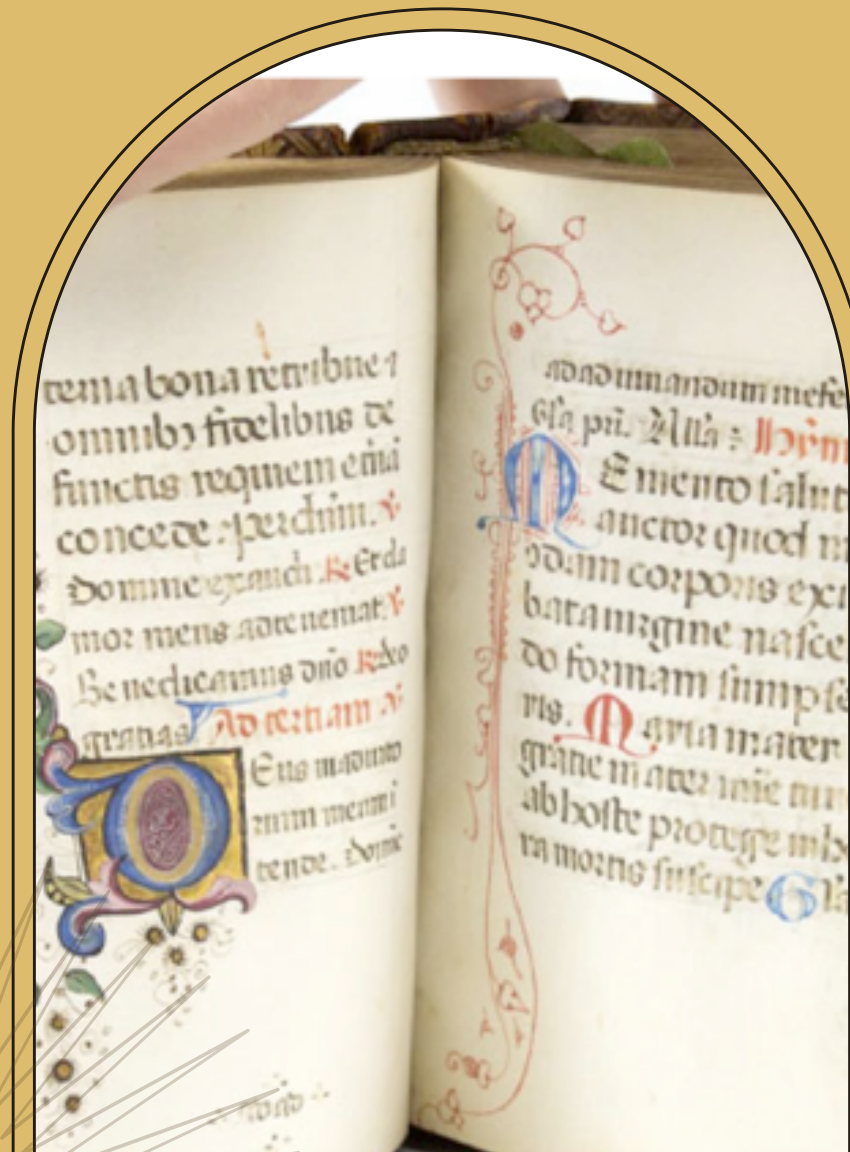 terna bona retribue ⁊
omnibꝫ fidelibus de
functis requiem eťnā
concede. per chrm̄. ℣.
Domine exaudi. ℟. Et cla
mor meus ad te ueniat. ℣.
Benedicamus dño ℟. deo
gratias Ad tertiam ℣
Eus in adiuto
rium meum i
tende. Domīe
ad adiuuandum me fe
Gl̃a pr̃i. All̃a : Hȳm
Memento salut
auctor quod n
odam corporis ex i
bata uirgine nasce
do formam sumpse
ris. Maria mater
gratie mater mīe tu
ab hoste protege in h
ra mortis suscipe Gl̃a